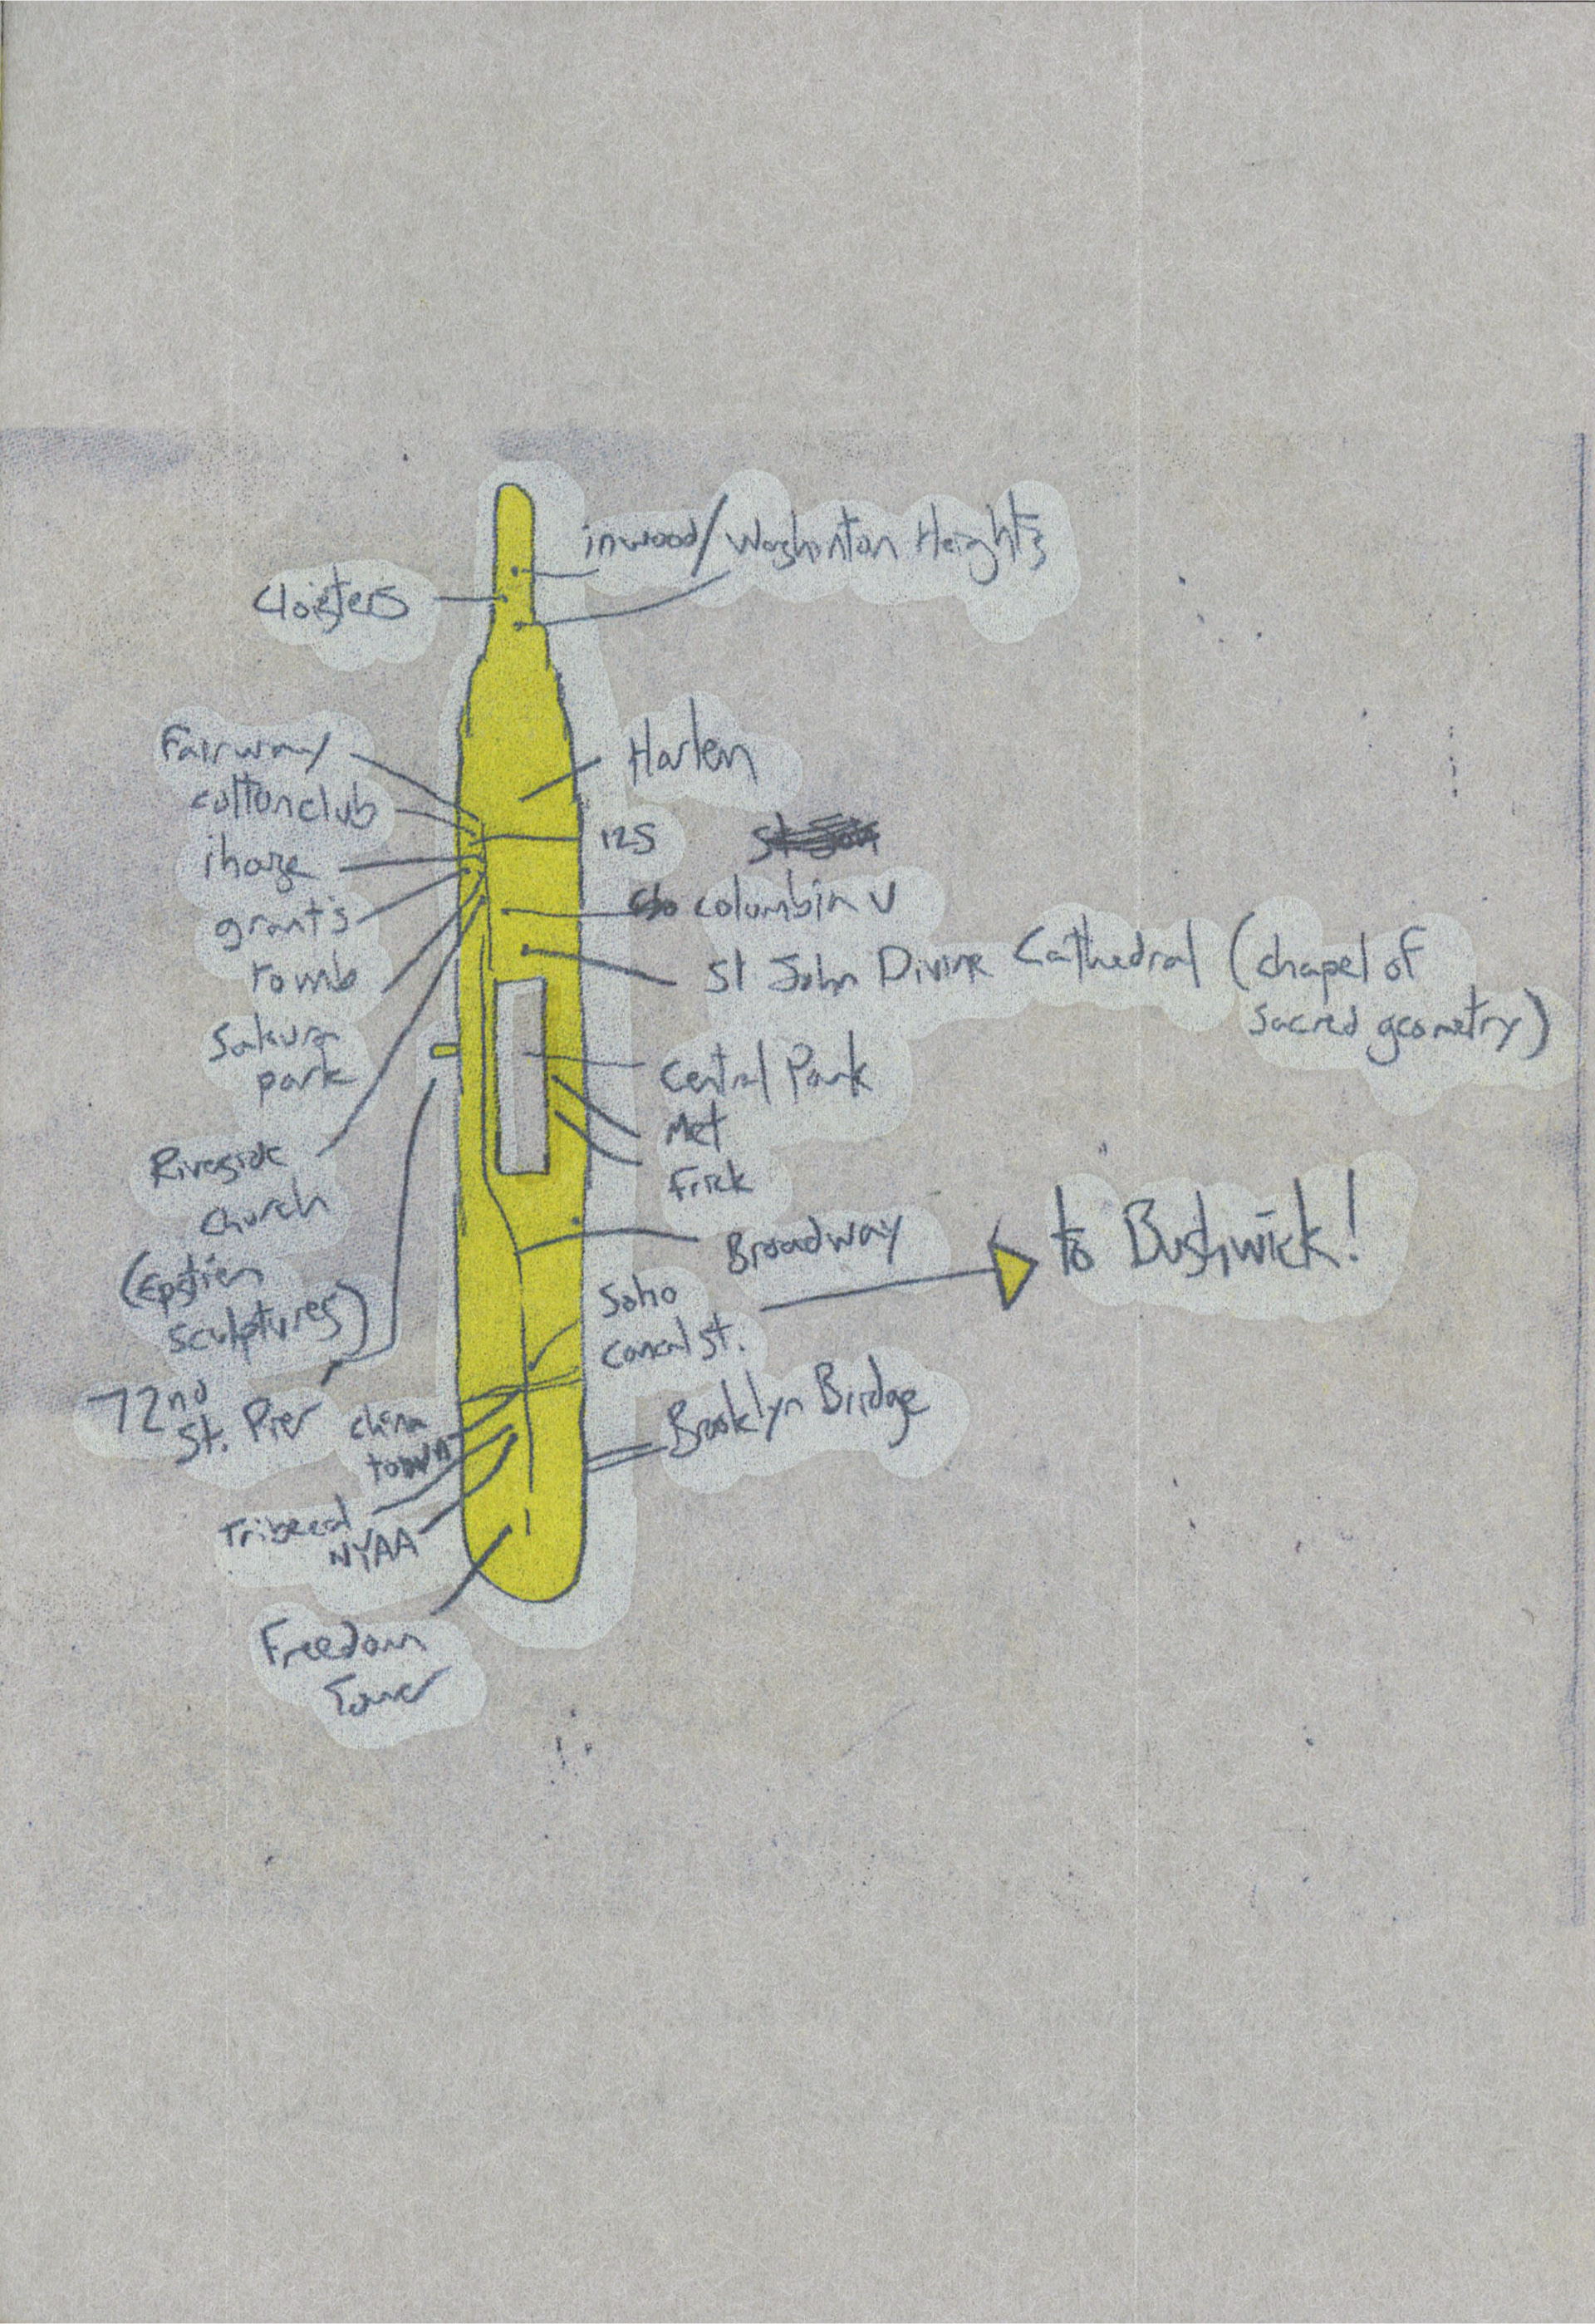 inwood/Washinton Heights
Cloisters
Fairway
cottonclub
ihouse
grant's
tomb
Sakura
park
Riverside
church
(Epstien
sculptures)
72nd
St. Pier
china
town
NYAA
Freedom
Tower
Harlem
125
columbia U
St John Divine Cathedral (chapel of
sacred geometry)
Central Park
Met
Frick
Broadway
Soho
canal st.
to Bushwick!
Brooklyn Bridge